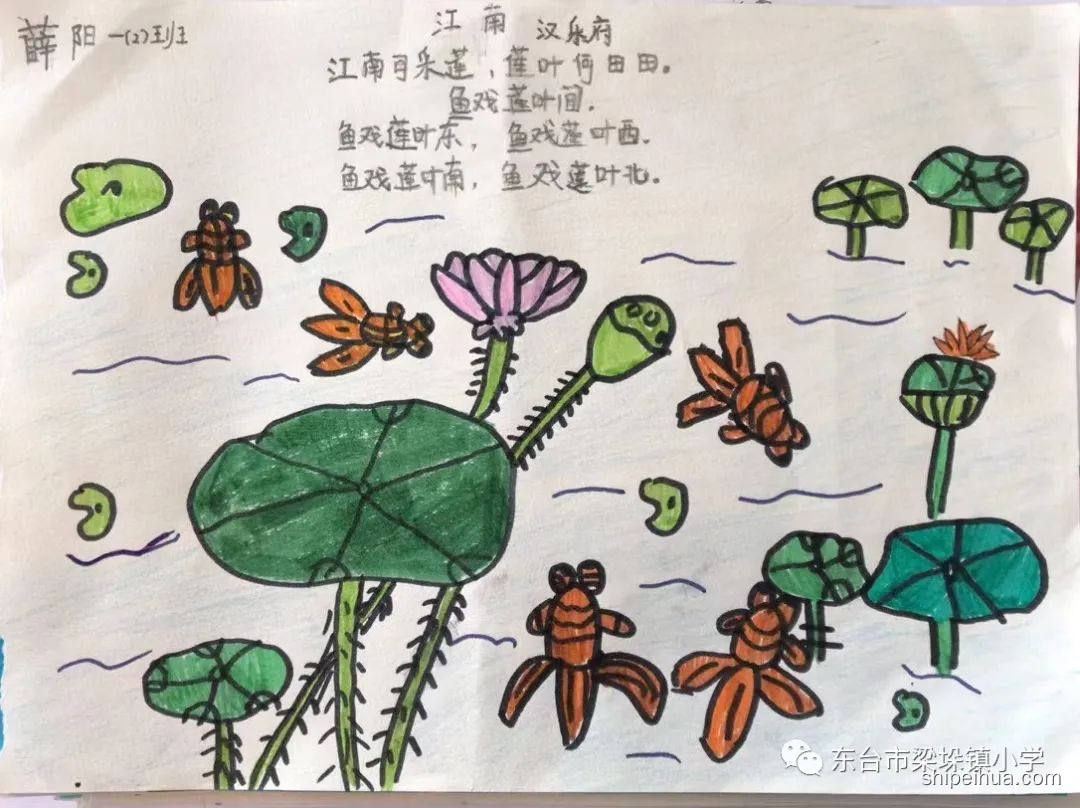 薛阳 一(2)班
江南 汉乐府
江南可采莲，莲叶何田田。
鱼戏莲叶间.
鱼戏莲叶东，鱼戏莲叶西。
鱼戏莲叶南，鱼戏莲叶北。
东台市梁垛镇小学
shipeihua.com